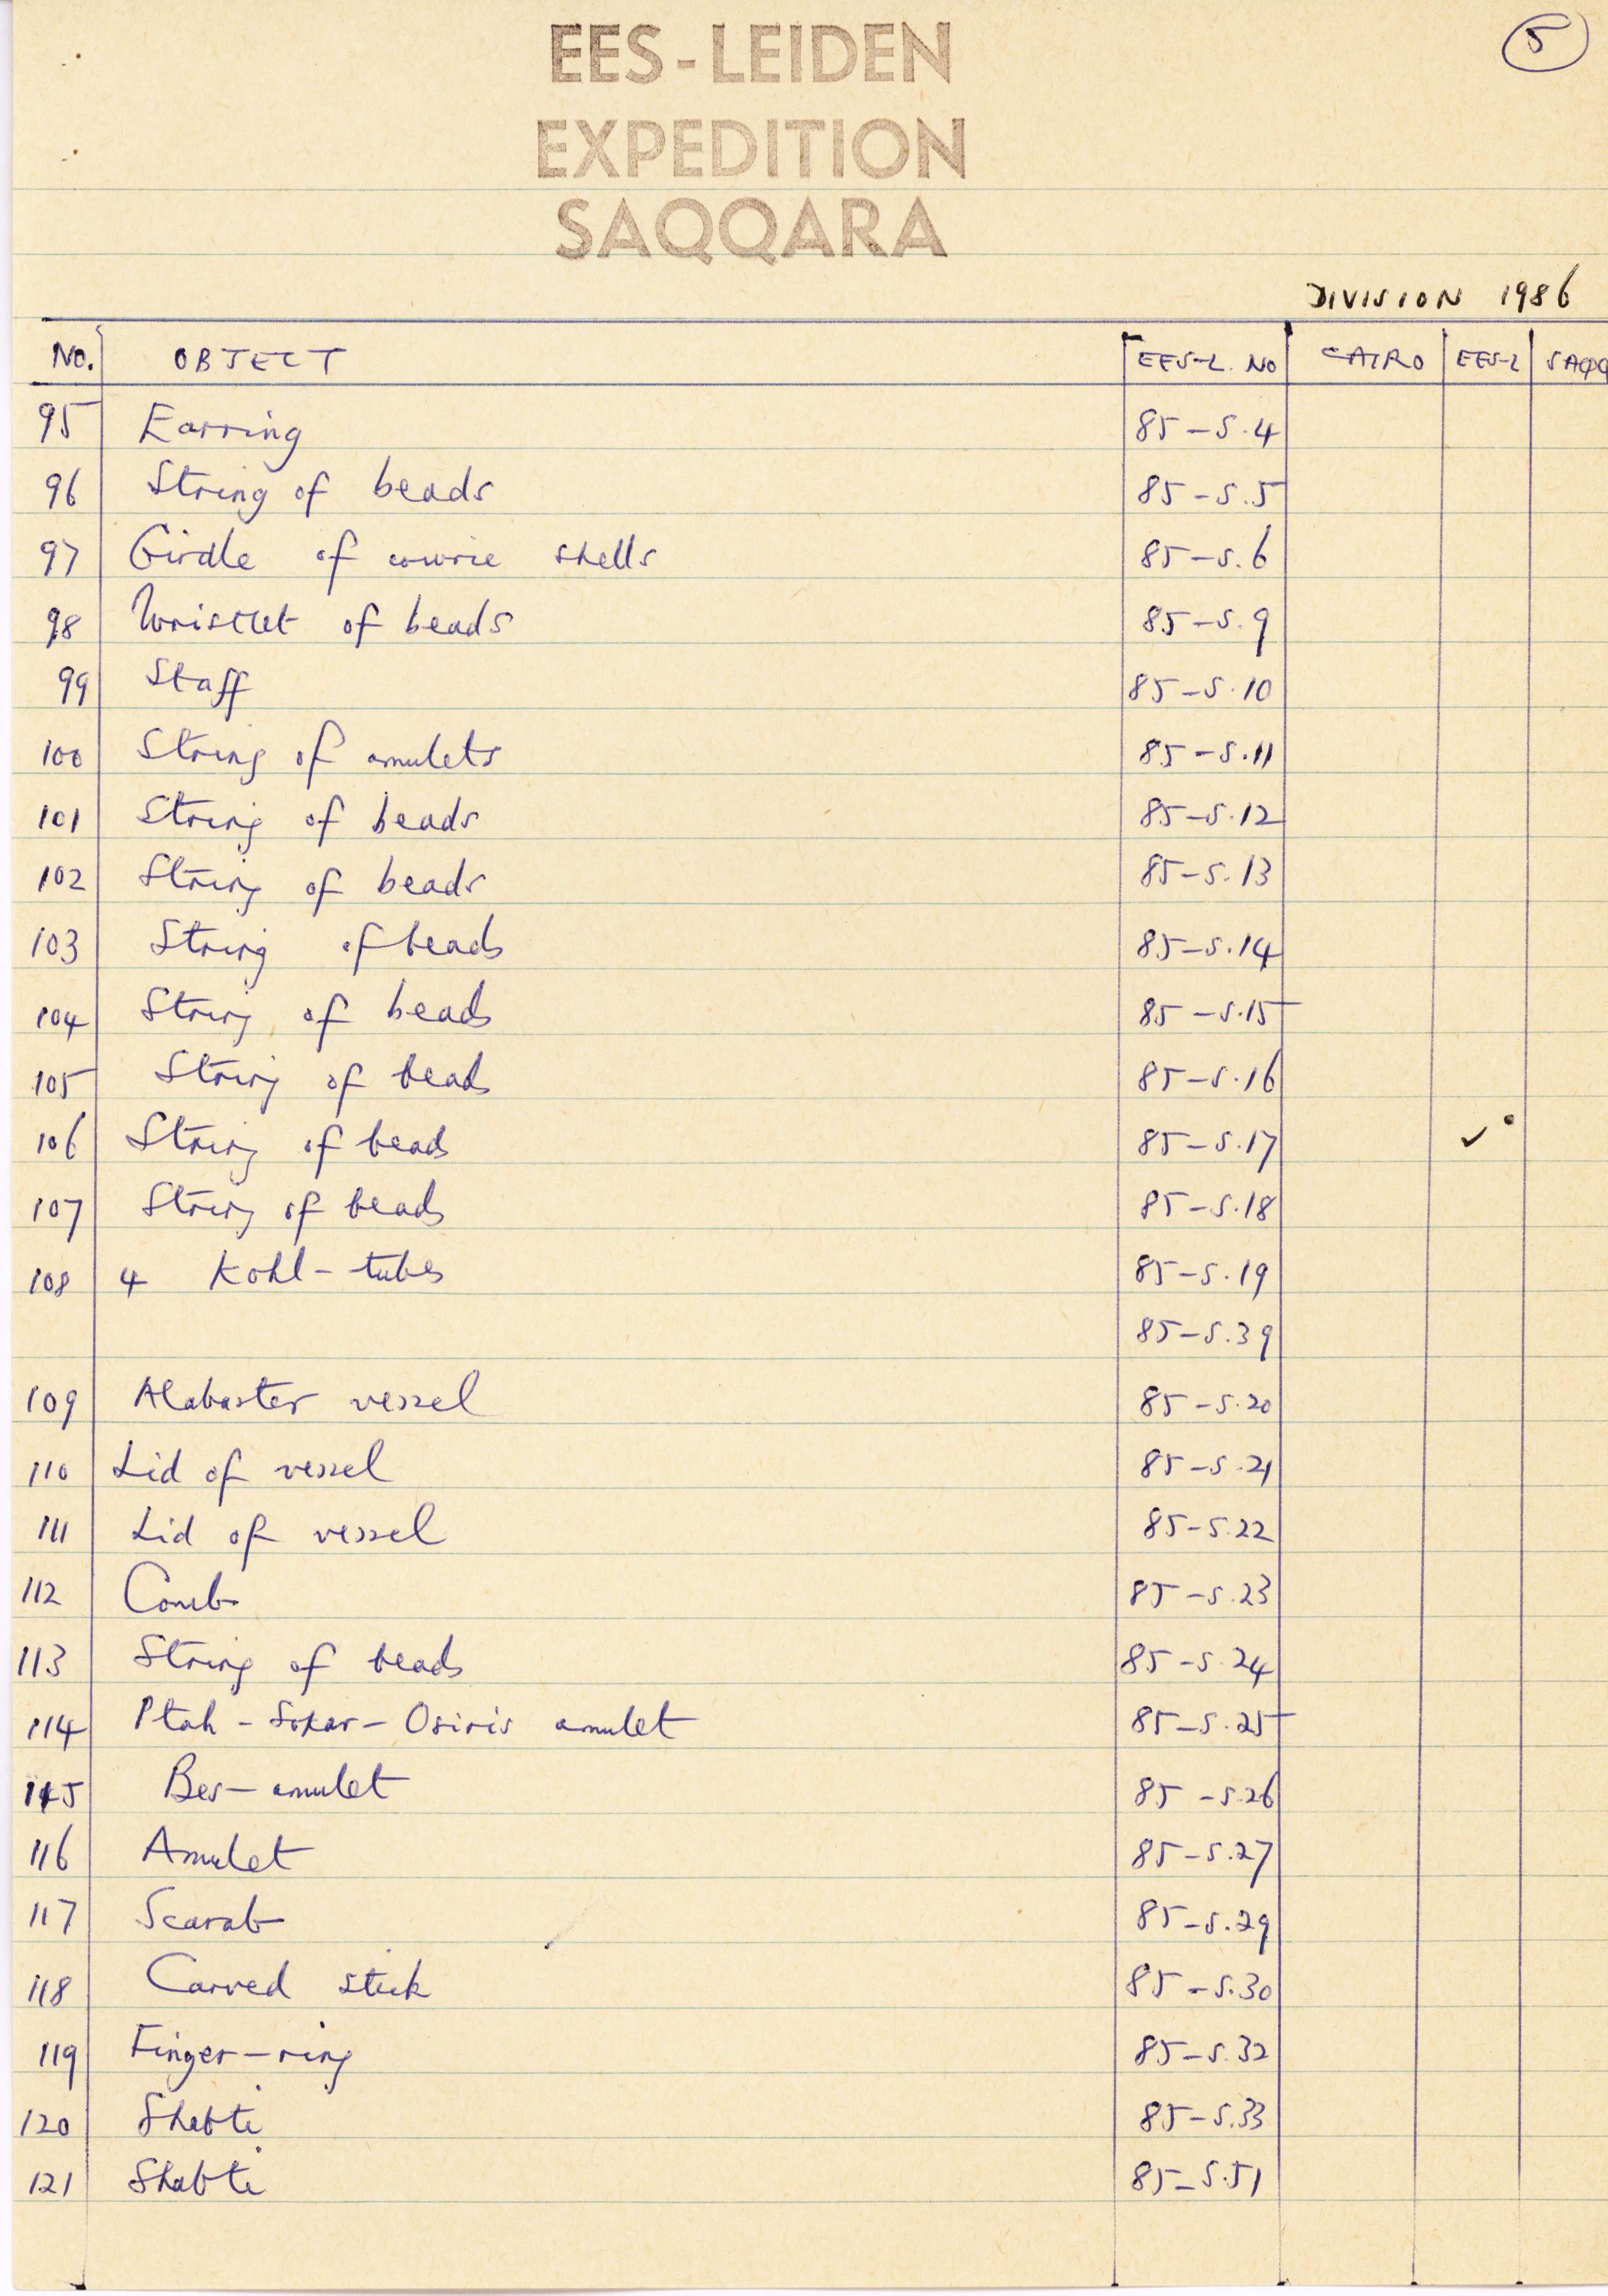 EES-LEIDEN
EXPEDITION
SAQQARA
5
DIVISION 1986
NO. OBJECT EES-L. NO CAIRO EES-L SAQQ
95 Earring 85-S.4
96 String of beads 85-S.5
97 Girdle of cowrie shells 85-S.6
98 Wristlet of beads 85-S.9
99 Staff 85-S.10
100 String of amulets 85-S.11
101 String of beads 85-S.12
102 String of beads 85-S.13
103 String of beads 85-S.14
104 String of beads 85-S.15
105 String of beads 85-S.16
106 String of beads 85-S.17 ✓
107 String of beads 85-S.18
108 4 Kohl-tubes 85-S.19
85-S.39
109 Alabaster vessel 85-S.20
110 Lid of vessel 85-S.21
111 Lid of vessel 85-S.22
112 Comb 85-S.23
113 String of beads 85-S.24
114 Ptah-Sokar-Osiris amulet 85-S.25
115 Bes-amulet 85-S.26
116 Amulet 85-S.27
117 Scarab 85-S.29
118 Carved stick 85-S.30
119 Finger-ring 85-S.32
120 Shabti 85-S.33
121 Shabti 85-S.51